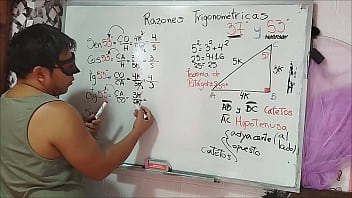 Razones Trigonometricas
37° y 53°
Sen 53° = CO/H = 4K/5K = 4/5
Cos 53° = CA/H = 3K/5K = 3/5
tg 53° = CO/CA = 4K/3K = 4/3
Ctg 53° = CA/CO = 3K/4K =
5² = 3² + 4²
25 = 9 + 16
25 = 25
Teorema de
Pitágoras
5K
3K
4K
A
B
37°
53°
AB y BC Catetos
AC Hipotenusa
catetos
adyacente (al lado)
opuesto